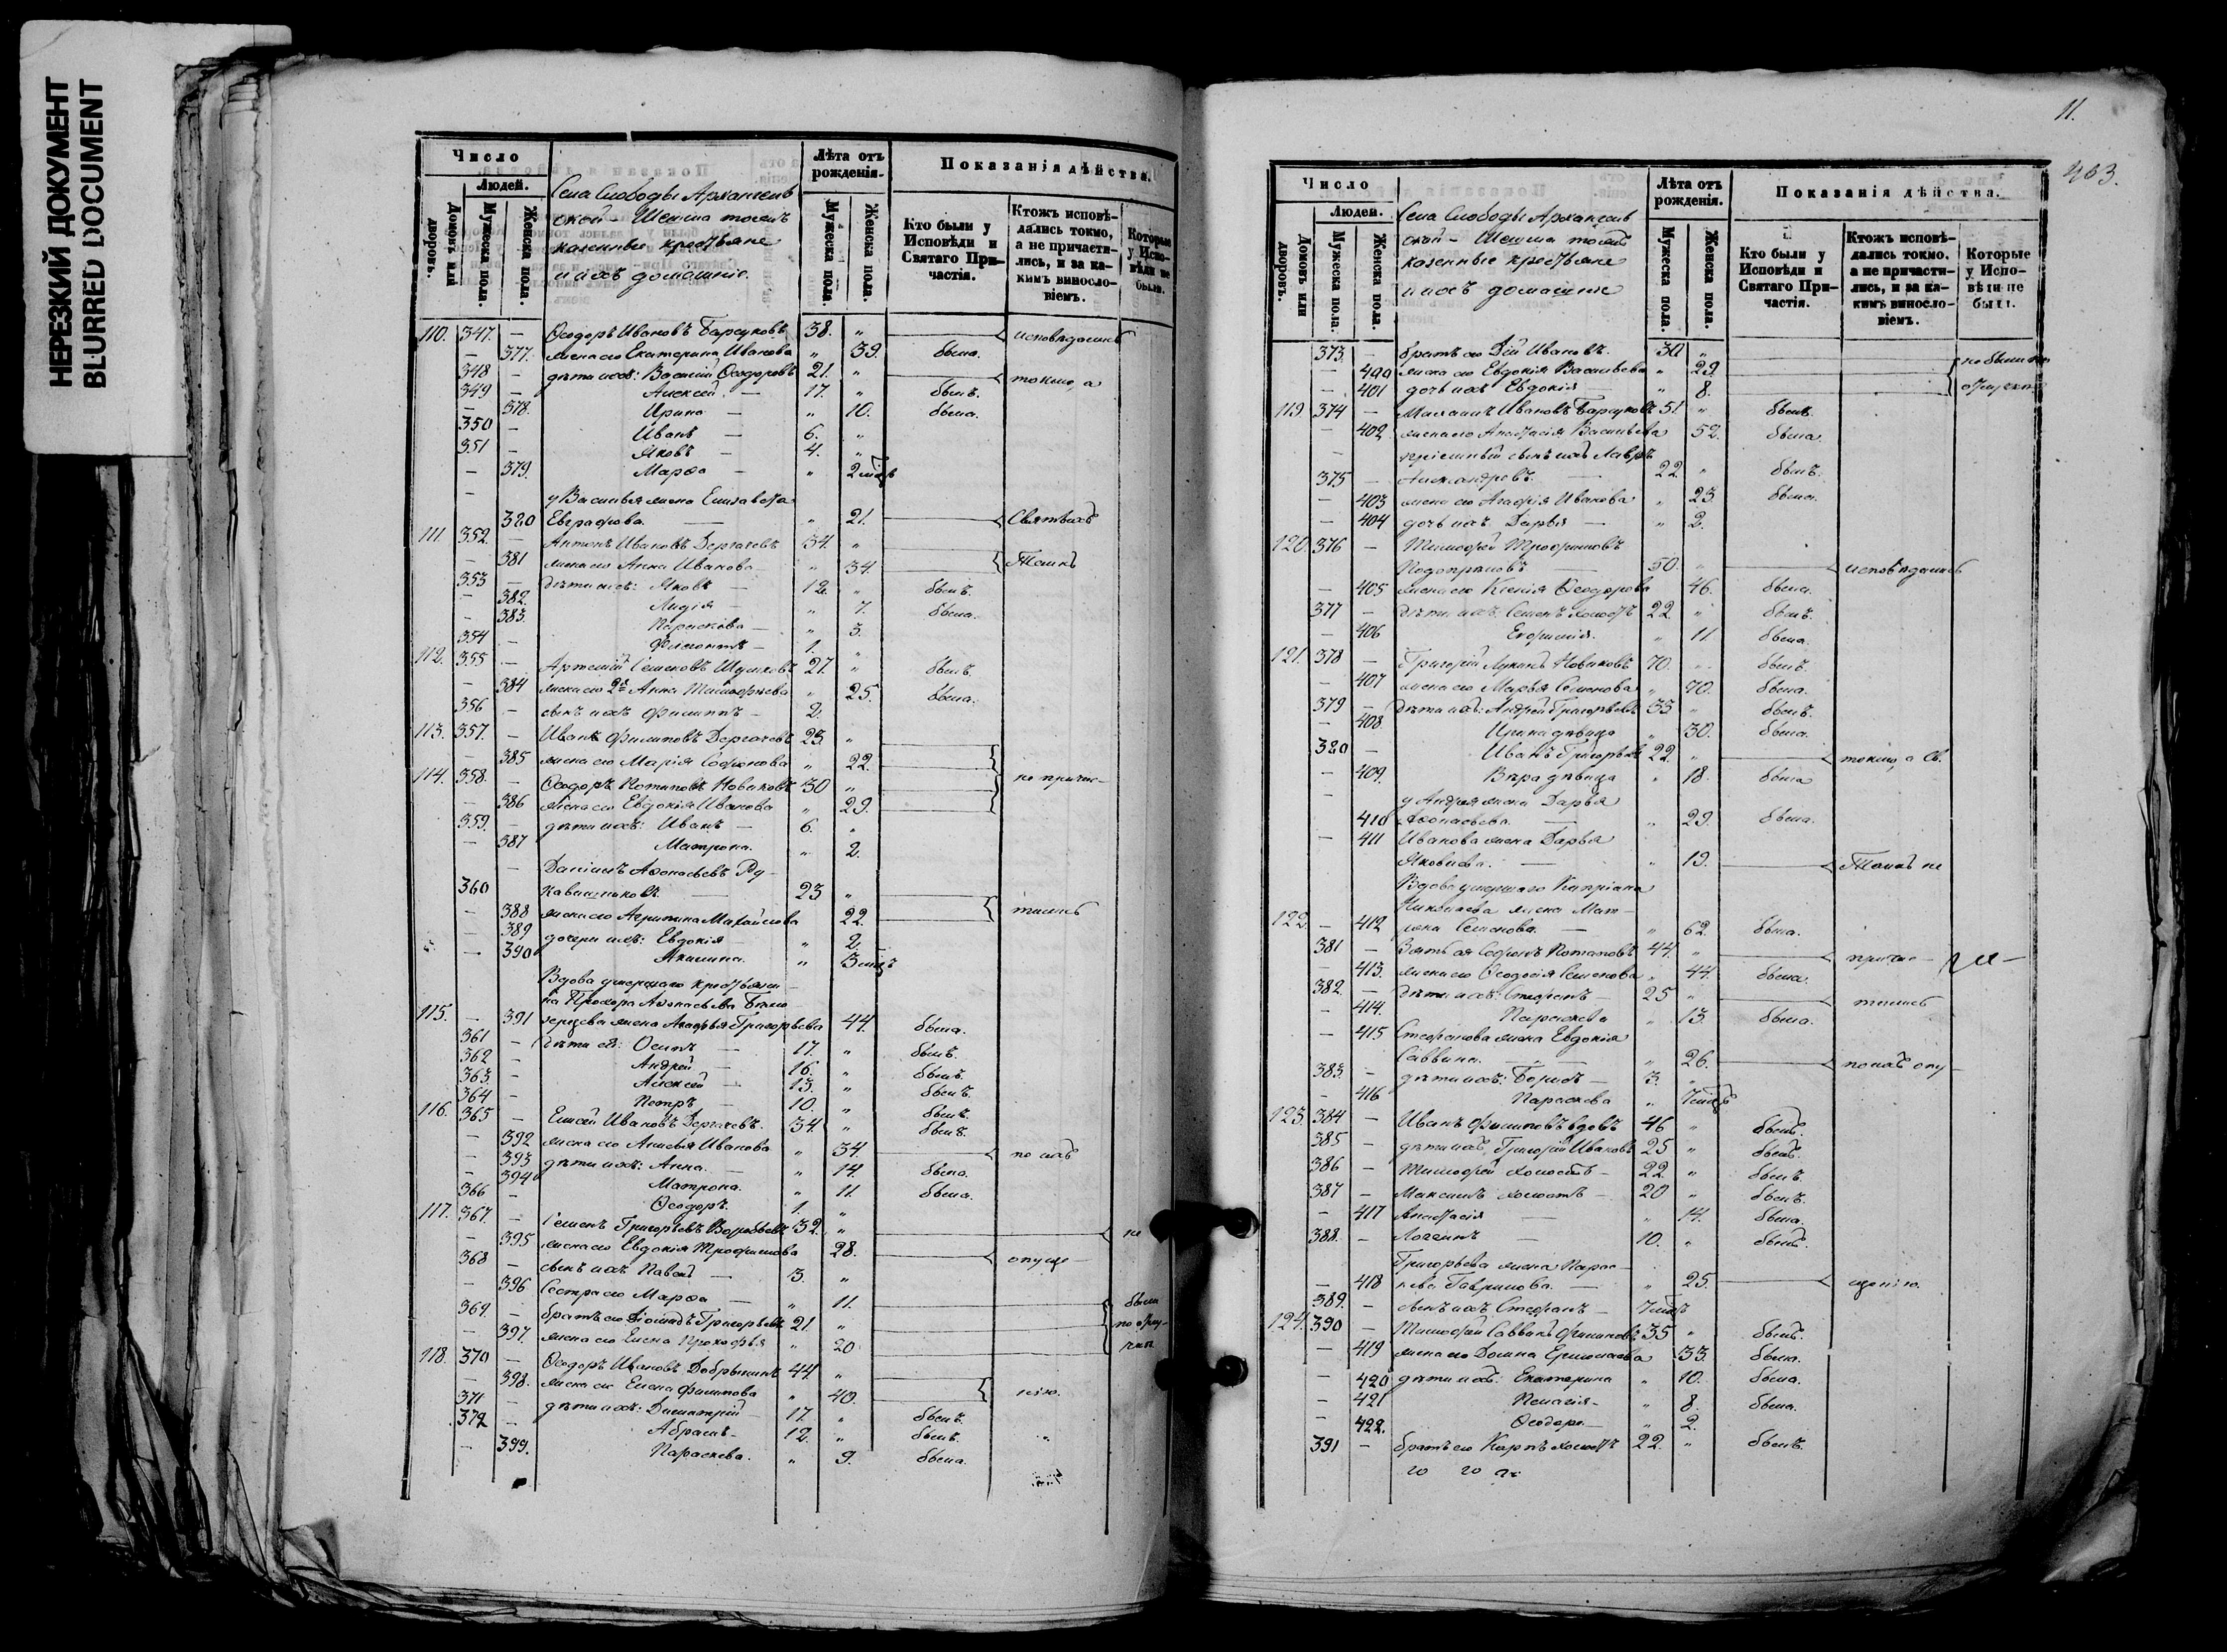 НЕРЕЗКИЙ ДОКУМЕНТ
BLURRED DOCUMENT
Число
Людей.
Домовъ или дворовъ.
Мужеска пола.
Женска пола.
Села Слободы Архангель
ской - тожъ
казенные крестьяне
и ихъ домашніе.
Лѣта отъ рожденія.
Мужеска пола.
Женска пола.
Показанія дѣйства.
Кто были у Исповѣди и Святаго Причастія.
Ктожъ исповѣдались токмо, а не причастились, и за какимъ винословіемъ.
Которые у Исповѣди не были.
110. 347. — Ѳеодоръ Ивановъ Барсуковъ 38. „ исповѣдались
— 377. жена его Екатерина Иванова „ 39. была.
348 — дѣти ихъ: Василій Ѳеодоровъ 21. „ токмо, а
349 — Алексей — 17. „ былъ.
— 378. Ирина — „ 10. была.
350 — Иванъ — 6. „
351 — Яковъ — 4. „
— 379. Марѳа — „ 2 мѣс
— у Василья жена Елизавета
380 Евграфова — „ 21. Святыхъ
111. 352. — Антонъ Ивановъ Дергачевъ 34. „
— 381 жена его Анна Иванова „ 34. Таинъ
353 — дѣти ихъ: Яковъ — 12. „ былъ.
— 382. Лидія — „ 7. была.
— 383. Параскева — „ 3.
354 — Филагонтъ — 1. „
112. 355 — Артемій Семеновъ 27. „ былъ.
— 384 жена его 2я Анна Тимофѣева „ 25. была.
356 — сынъ ихъ Филиппъ — 2.
113. 357. — Иванъ Филиповъ Дергачевъ 23. „
— 385 жена его Марія Софонова „ 22.
114. 358. — Ѳеодоръ Потаповъ Новиковъ 30 „ не причас-
— 386 жена его Евдокія Иванова „ 29.
359. — дѣти ихъ: Иванъ — 6. „
— 387 Матрона. „ 2.
— Даніилъ Аѳонасьевъ Ру-
360 кавишниковъ. 23 „
— 388 жена его Агрипина Михайлова 22. тились
— 389 дочери ихъ: Евдокія — „ 2.
— 390 Акилина. „ 3 мѣс
Вдова умершаго крестьяни-
на Прохора Аѳонасьева
115. — 391 жена Агафья Григорьева 44. была.
361 — дѣти ея: Осипъ — 17. „ былъ.
362 — Андрей — 16. „ былъ.
363 — Алексей — 13. „ былъ.
364 — Петръ — 10. „ былъ.
116. 365 — Елисей Ивановъ Дергачевъ. 34. „ былъ.
— 392 жена его Иванова „ 34. по ихъ
— 393 дѣти ихъ: Анна. — „ 14. была.
— 394 Матрона. „ 11. была.
366 — Ѳеодоръ. 1. „
117. 367. — Семенъ Григорьевъ Воробьевъ 32. „ не
— 395 жена его Евдокія Трофимова „ 28.
368 — сынъ ихъ Павелъ — 3. „ опуще-
— 396. Сестра его Марѳа — „ 11. были
369. — братъ его Діомидъ Григорьевъ 21. „ по отлу-
— 397. жена его Елена Прокофья „ 20 чкѣ
118. 370 — Ѳеодоръ Ивановъ Добрынинъ 44 „
— 398. жена его Елена Филипова „ 40. нію.
371 — дѣти ихъ: Димитрій — 17. „ былъ.
372 — Абрамъ- 12. „ былъ.
— 399. Параскева. „ 9. была.
11.
463.
Число
Людей.
Домовъ или дворовъ.
Мужеска пола.
Женска пола.
Села Слободы Архангель
ской - тожъ
казенные крестьяне
и ихъ домашніе
Лѣта отъ рожденія.
Мужеска пола.
Женска пола.
Показанія дѣйства.
Кто были у Исповѣди и Святаго Причастія.
Ктожъ исповѣдались токмо, а не причастились, и за какимъ винословіемъ.
Которые у Исповѣди не были.
373. — братъ его Дій Ивановъ. 30 „ не были по
— 400 жена его Евдокія Васильева „ 29.
— 401 дочь ихъ Евдокія — „ 8.
119 374 — Ивановъ Барсуковъ 51. „ былъ.
— 402 жена его Анастасія Васильева 52. была.
— пріемный сынъ ихъ Лавръ
375 Александровъ. — 22. „ былъ.
— 403 жена его Агафія Иванова „ 23. была.
— 404 дочь ихъ Дарья — „ 2.
120. 376 — Тимофей Трофимовъ
50. „ исповѣдались
— 405 жена его Ксенія Ѳеодорова 46. была.
377 — дѣти ихъ: Семенъ холостъ 22. „ былъ.
— 406 Евфимія. „ 11. была.
121. 378 — Григорій Лукинъ Новиковъ 70. „ былъ.
— 407 жена его Марья Семенова „ 70. была.
379 — дѣти ихъ: Андрей Григорьевъ 33 „ былъ.
— 408 Ирина дѣвица „ 30. была.
380 — Иванъ Григорьевъ 22. „ токмо, а Св.
— 409. Вѣра дѣвица „ 18. была
— у Андрея жена Дарья
410 Аѳонасьева. — „ 29. была.
— 411 Иванова жена Дарья
Яковлева. — „ 19. Таинъ не
Вдова умершаго Кипріана
Николаева жена Мат-
122. — 412 рона Семенова. — „ 62. была.
381 — Зять ея Софонъ Потаповъ 44. „ причас-
— 413. жена его Ѳеодосія Семенова „ 44. была.
382. — дѣти ихъ: Стефанъ — 25 „ тились
— 414. Параскева „ 13. была.
— 415 Стефанова жена Евдокія
Саввина. — „ 26. по ихъ опу-
383. — дѣти ихъ: Борисъ — 3. „
— 416 Параскева „ 7 мѣс
123. 384 — Иванъ Филиповъ вдовъ 46 „ былъ.
385 — дѣти ихъ, Григорій Ивановъ 25 „ былъ.
386 — Тимофей холостъ — 22. „ былъ.
387 — Максимъ холостъ — 20 „ былъ.
— 417 Анастасія — „ 14. была.
388. — Логгинъ — 10. „ былъ.
Григорьева жена Парас-
— 418 кева Гаврилова. — „ 25. щенію.
389. — сынъ ихъ Стефанъ — 7 мѣс
124. 390 — Тимофей Саввинъ Филиповъ 35 „ былъ.
— 419 жена его Домна Ермолаева 33. была.
— 420 дѣти ихъ: Екатерина „ 10. была.
— 421 Пелагія- „ 8. была.
— 422. Ѳеодора— „ 2.
391 — братъ его Карпъ холостъ 22. „ былъ.